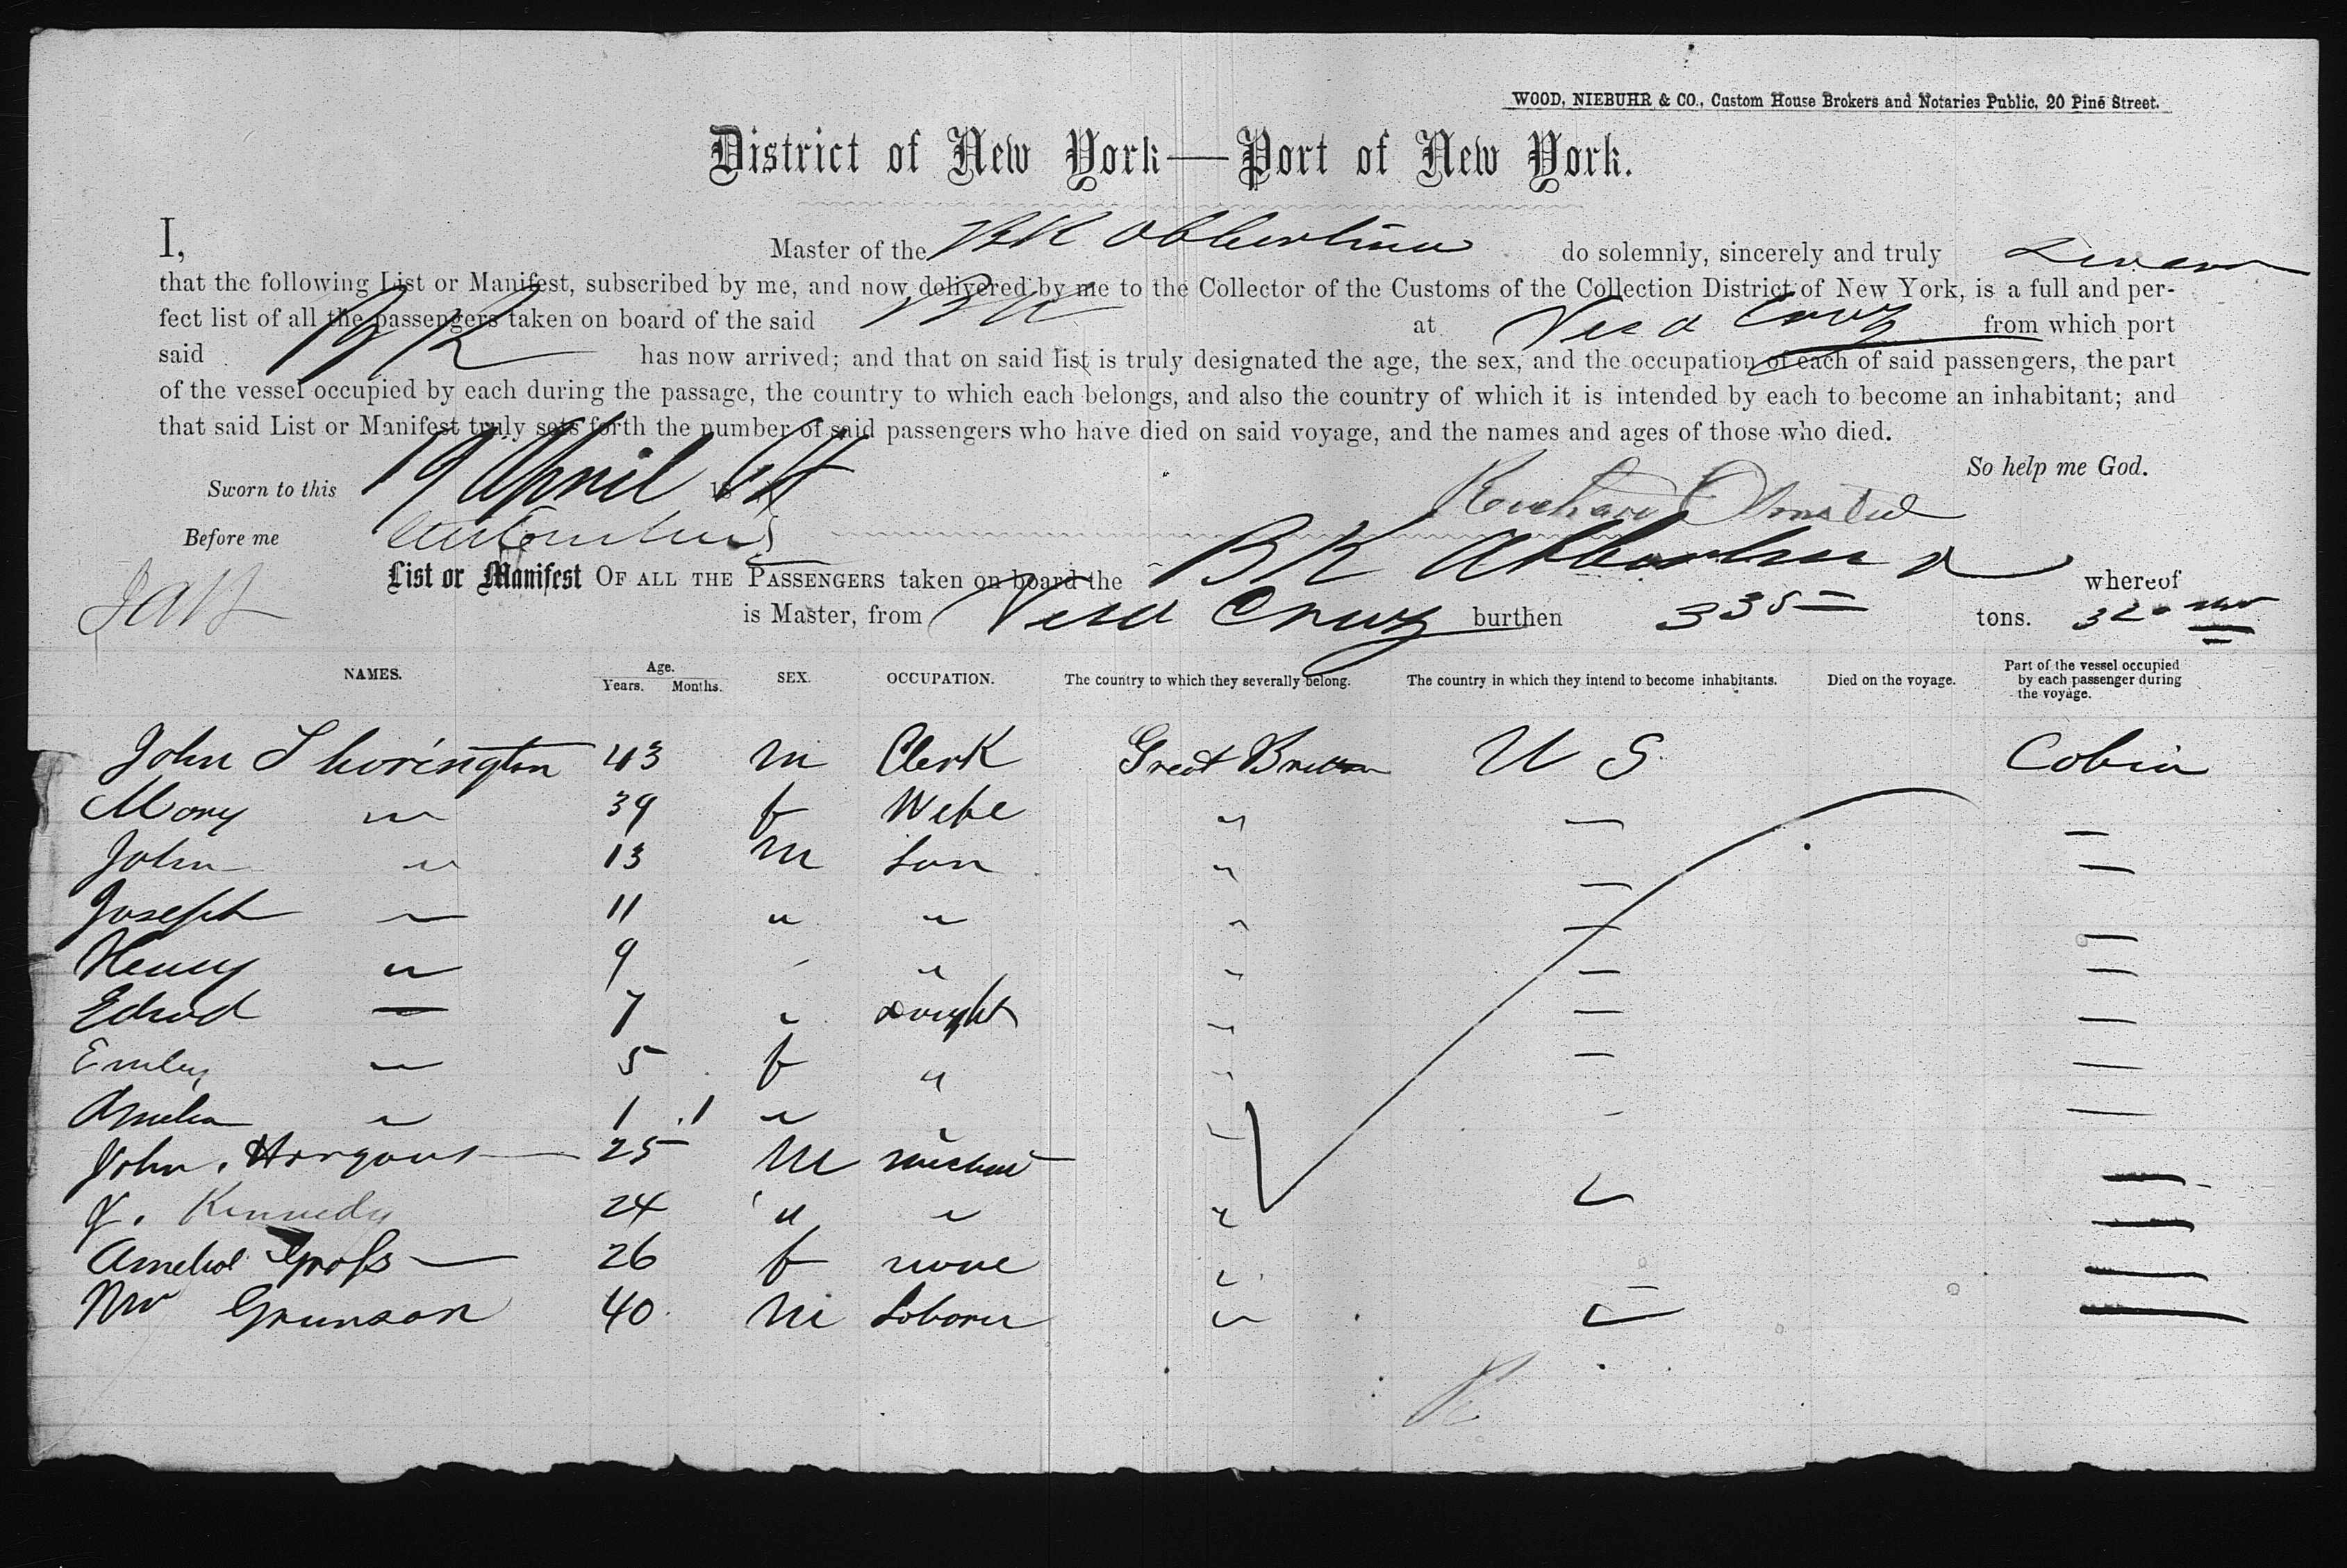 WOOD, NIEBUHR & CO., Custom House Brokers and Notaries Public, 20 Pine Street.
District of New York—Port of New York.
I, Master of the BK Abbertina do solemnly, sincerely and truly Swear
that the following List or Manifest, subscribed by me, and now delivered by me to the Collector of the Customs of the Collection District of New York, is a full and per-
fect list of all the passengers taken on board of the said BK at Vera Cruz from which port
said BK has now arrived; and that on said list is truly designated the age, the sex, and the occupation of each of said passengers, the part
of the vessel occupied by each during the passage, the country to which each belongs, and also the country of which it is intended by each to become an inhabitant; and
that said List or Manifest truly sets forth the number of said passengers who have died on said voyage, and the names and ages of those who died.
So help me God.
Sworn to this 19 April 18
Before me
List or Manifest OF ALL THE PASSENGERS taken on board the BK Abbertina whereof
is Master, from Vera Cruz burthen 335 tons.
NAMES. Age. Years. Months. SEX. OCCUPATION. The country to which they severally belong. The country in which they intend to become inhabitants. Died on the voyage. Part of the vessel occupied by each passenger during the voyage.
John Thorington 43 m Clerk Great Britain U S Cobin
Mary " 39 f Wife " — —
John " 13 m Son " — —
Joseph " 11 " " " — —
Henry " 9 " " — —
Edwd — 7 " " — —
Emley " 5 f " " — —
Amelia " 1 1 " " —
John 25 M —
J. Kennedy 24 " " " —
Amelia Gross — 26 f none " —
Mr Grunson 40 M Laborer " —